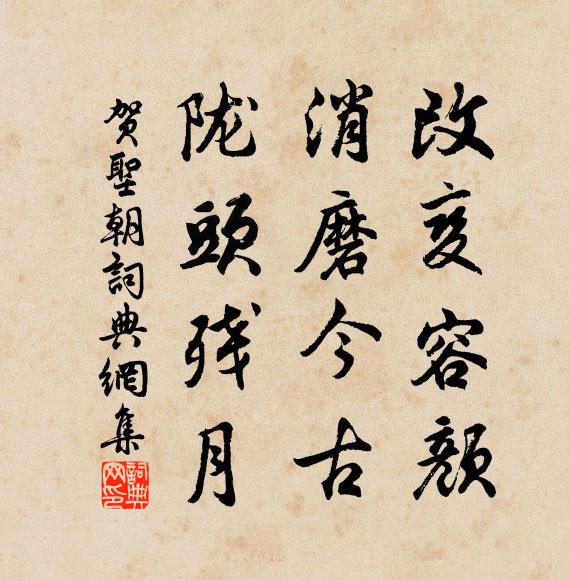 改变容颜
消磨今古
陇頭残月
贺聖朝詞典網集
詞典网印